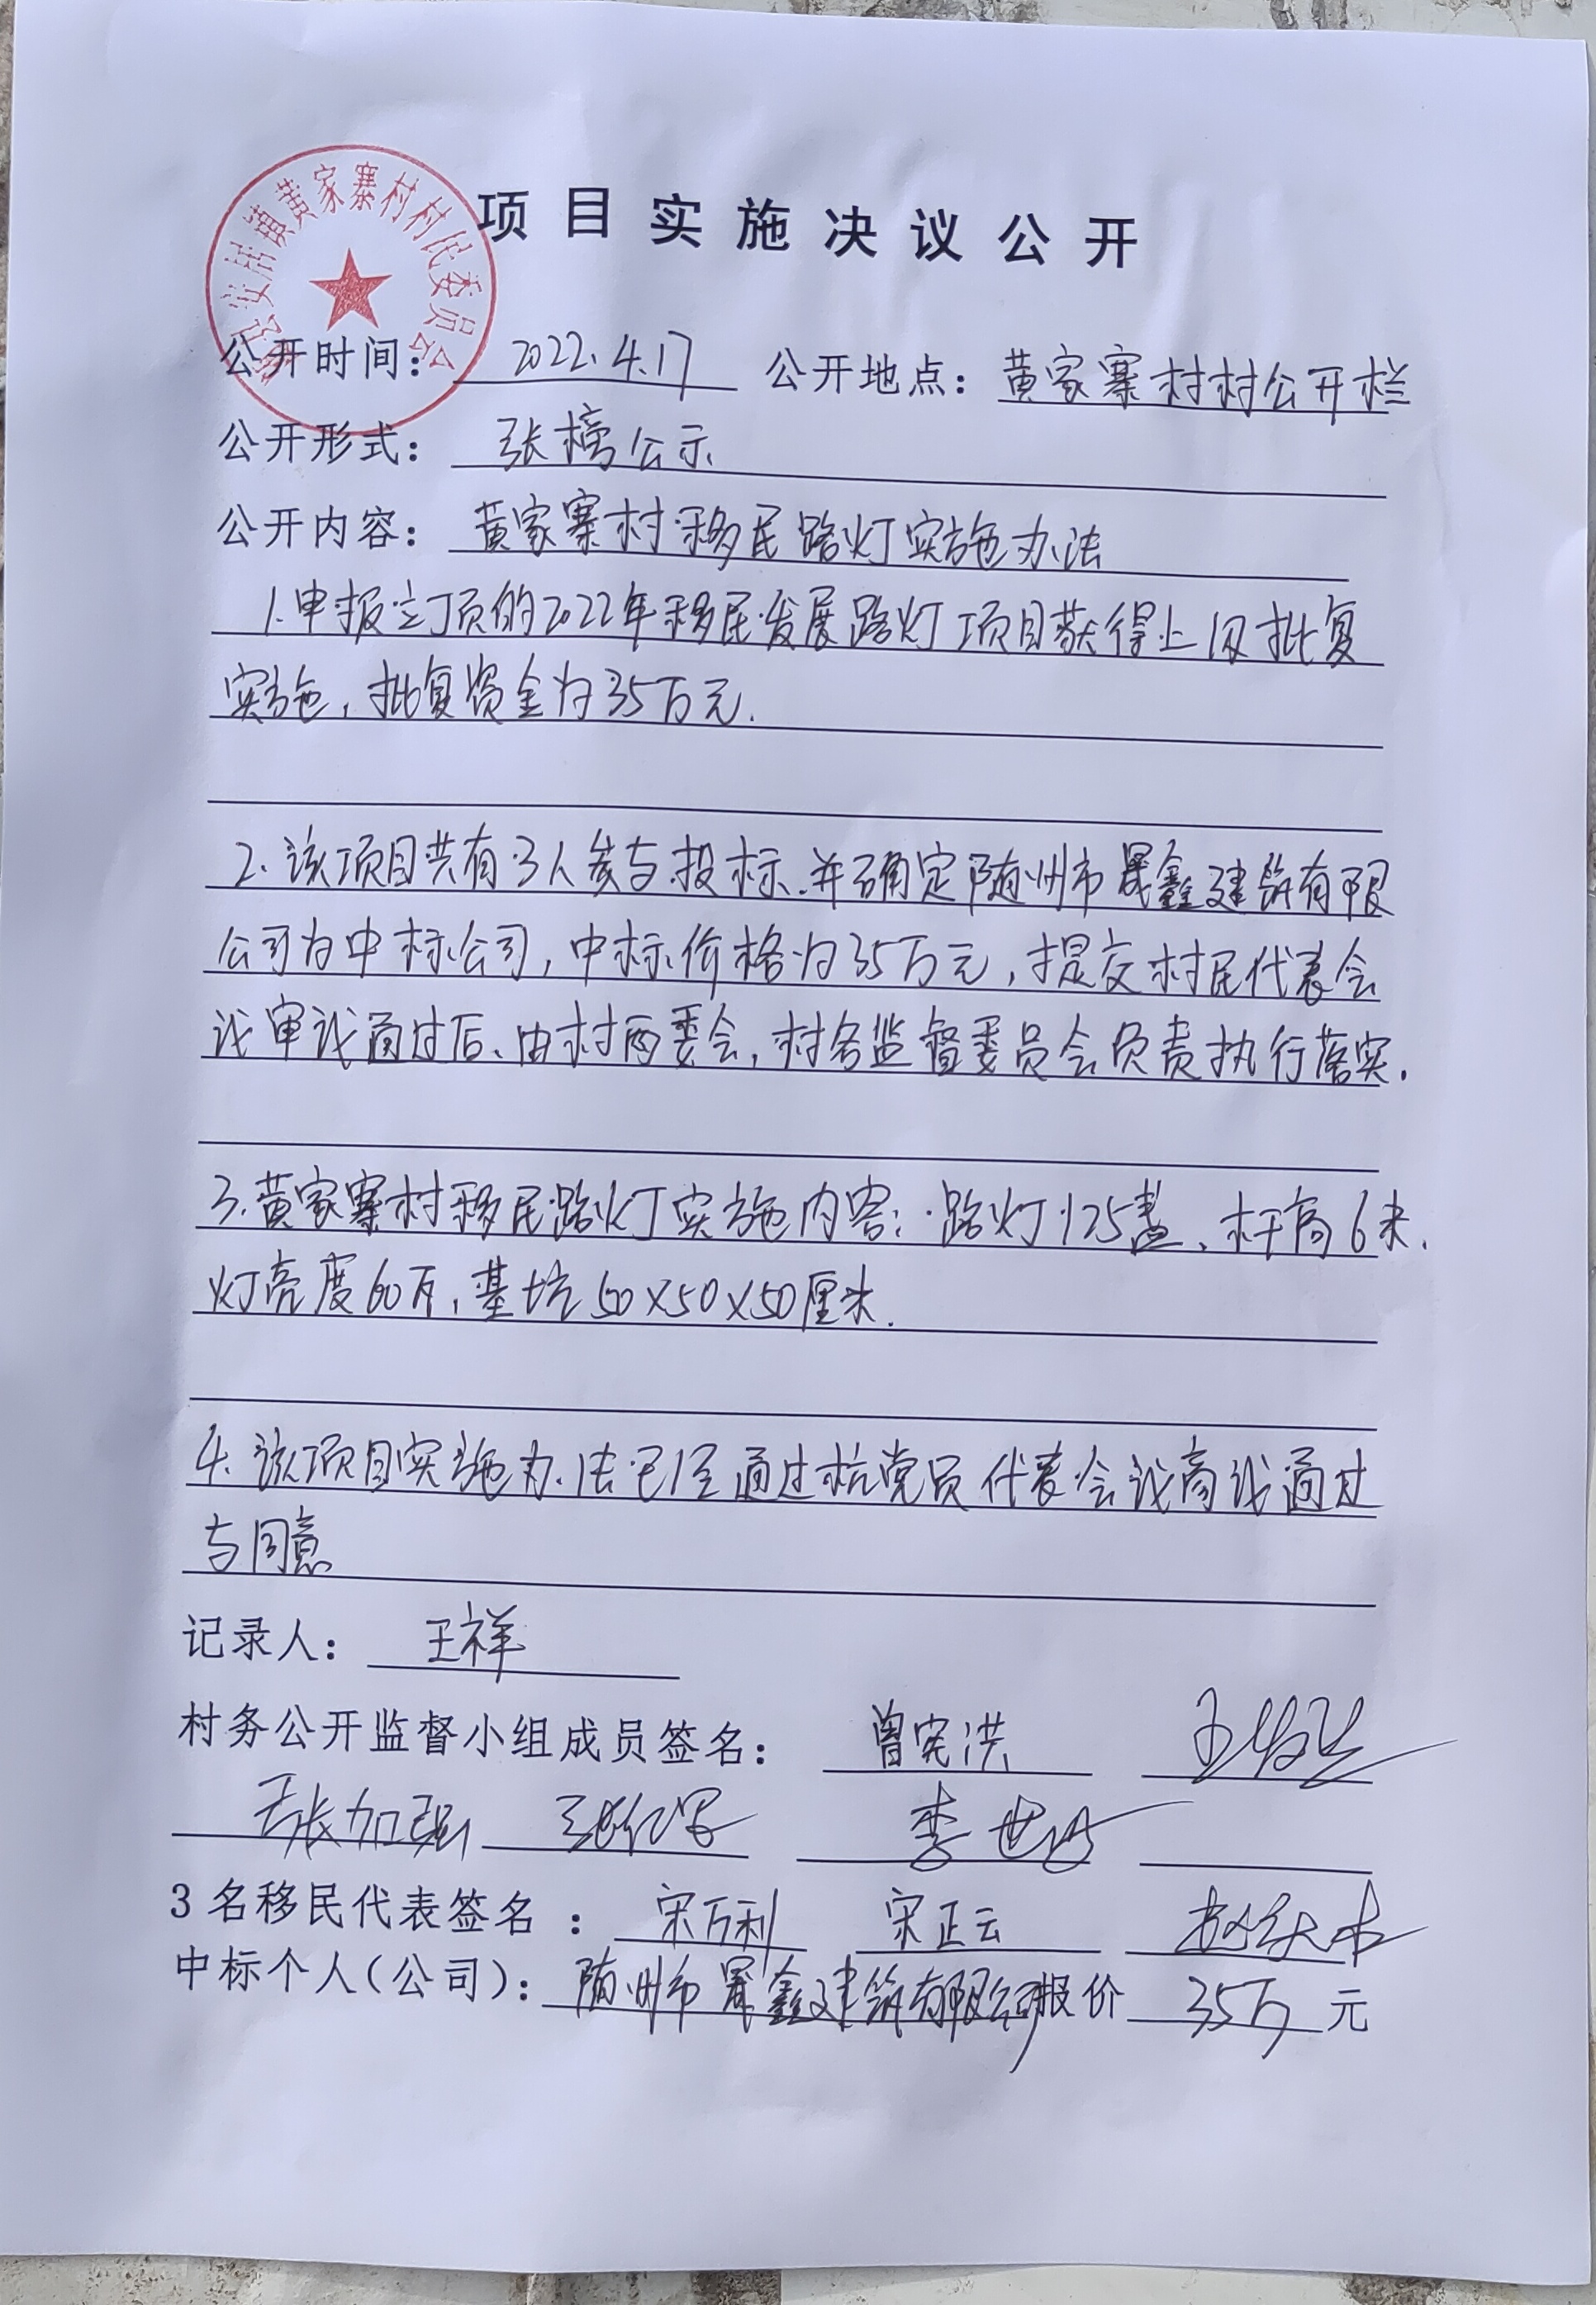 安居镇黄家寨村村民委员会
项目实施决议公开
公开时间：2022.4.17 公开地点：黄家寨村村公开栏
公开形式：张榜公示
公开内容：黄家寨村移民路灯实施办法
1.申报立项的2022年移民发展路灯项目获得上级批复
实施，批复资金为35万元.
2.该项目共有3人参与投标.并确定随州市晟鑫建筑有限
公司为中标公司,中标价格为35万元,提交村民代表会
议审议通过后、由村两委会,村务监督委员会负责执行落实.
3.黄家寨村移民路灯实施内容:路灯125盏、杆高6米.
灯亮度60瓦,基坑50×50×50厘米.
4.该项目实施办法已经通过村党员代表会议商议通过
与同意
记录人：王祥
村务公开监督小组成员签名：曾宪洪
张加强 李世
3名移民代表签名：宋万利 宋正云
中标个人(公司)：随州市晟鑫建筑有限公司报价35万元